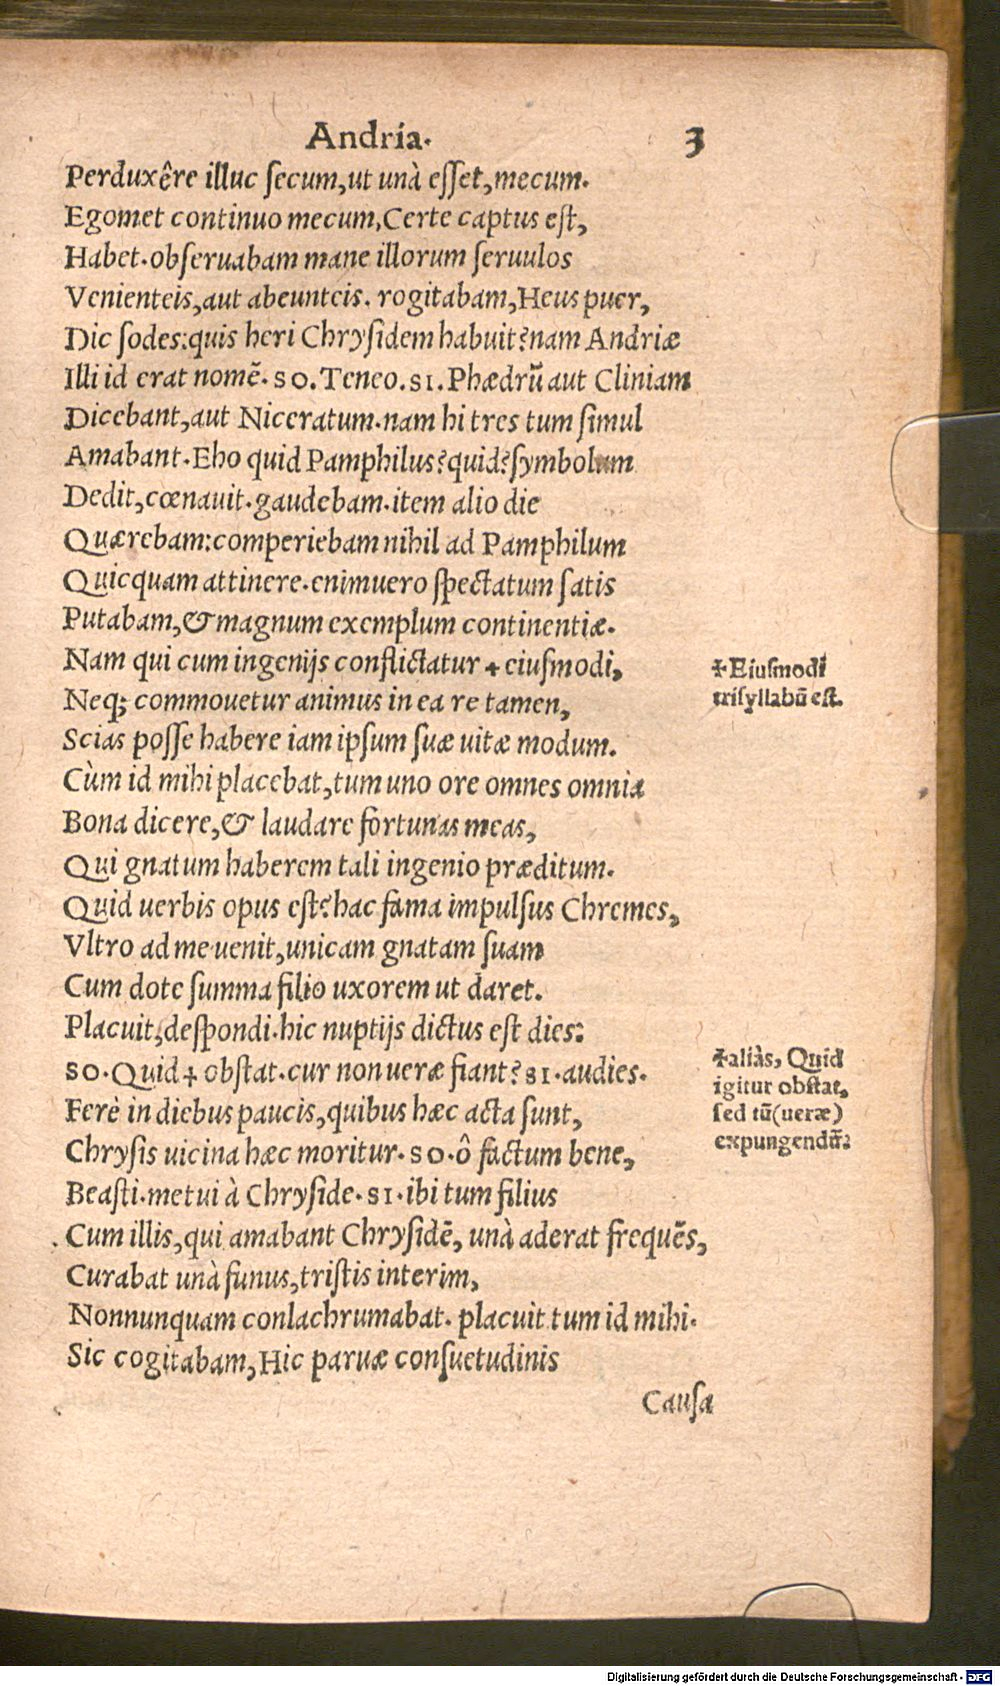 Andria.
3
Perduxêre illuc ſecum,ut unà eſſet,mecum.
Egomet continuo mecum,Certe captus eſt,
Habet.obſeruabam mane illorum ſeruulos
Venienteis,aut abeunteis. rogitabam,Heus puer,
Dic ſodes:quis heri Chryſidem habuit?nam Andriæ
Illi id erat nomē.SO.Teneo.SI.Phædrū aut Cliniam
Dicebant,aut Niceratum.nam hi tres tum ſimul
Amabant.Eho quid Pamphilus?quid?ſymbolam
Dedit,cœnauit.gaudebam.item alio die
Quærebam:comperiebam nihil ad Pamphilum
Quicquam attinere.enimuero ſpectatum ſatis
Putabam,& magnum exemplum continentiæ.
Nam qui cum ingenijs conflictatur ✢ eiuſmodi,
Neq; commouetur animus in ea re tamen,
Scias poſſe habere iam ipſum ſuæ uitæ modum.
Cùm id mihi placebat,tum uno ore omnes omnia
Bona dicere,& laudare fortunas meas,
Qui gnatum haberem tali ingenio præditum.
Quid uerbis opus eſt?hac fama impulſus Chremes,
Vltro ad me uenit,unicam gnatam ſuam
Cum dote ſumma filio uxorem ut daret.
Placuit,deſpondi.hic nuptijs dictus eſt dies:
SO.Quid ✢ obſtat.cur non ueræ fiant?SI.audies.
Ferè in diebus paucis,quibus hæc acta ſunt,
Chryſis uicina hæc moritur.SO.ô factum bene,
Beaſti.metui à Chryſide.SI.ibi tum filius
Cum illis,qui amabant Chryſidē, unà aderat frequēs,
Curabat unà funus,triſtis interim,
Nonnunquam conlachrumabat. placuit tum id mihi.
Sic cogitabam,Hic paruæ conſuetudinis
Cauſa
✢Eiuſmodi
triſyllabū eſt.
✢aliàs, Quid
igitur obſtat,
ſed tū(ueræ)
expungendū:
Digitalisierung gefördert durch die Deutsche Forschungsgemeinschaft - DFG